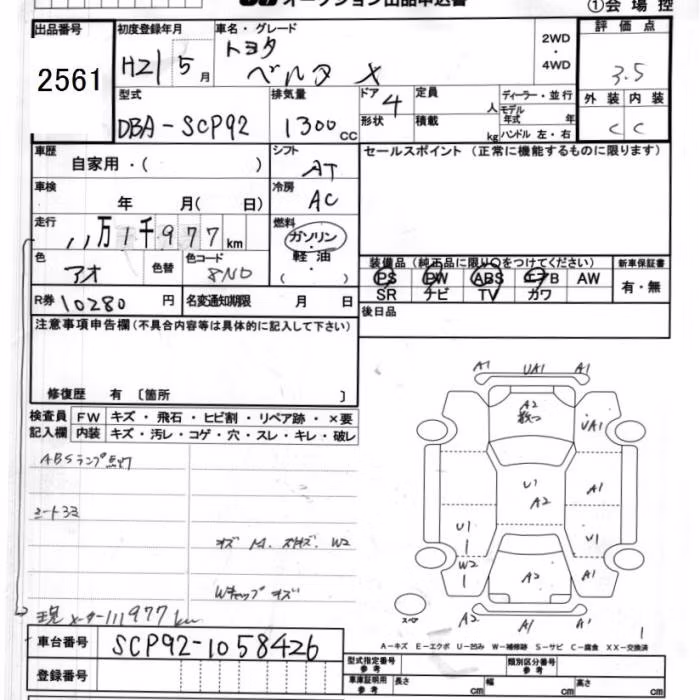 オークション出品申込書
①会場控
出品番号
2561
初度登録年月
H21 5 月
車名・グレード
トヨタ
ベルタ X
2WD
・
4WD
評価点
3.5
外装 内装
C C
型式
DBA-SCP92
排気量
1300 cc
ドア 4
形状
定員 人
積載 kg
ディーラー・並行
モデル
年式 年
ハンドル 左・右
車歴
自家用・( )
シフト
AT
セールスポイント (正常に機能するものに限ります)
車検
年 月( 日)
冷房
AC
走行
11万1千977km
燃料
ガソリン
・
軽油
・
( )
色
アオ
色替
色コード
8N0
装備品 (純正品に限り○をつけてください)
新車保証書
PS PW ABS エアB AW
SR ナビ TV カワ
有・無
R券 10280 円
名変通知期限 月 日
後日品
注意事項申告欄 (不具合内容等は具体的に記入して下さい)
修復歴 有 〔箇所 〕
検査員
記入欄
FW キズ・飛石・ヒビ割・リペア跡・×要
内装 キズ・汚レ・コゲ・穴・スレ・キレ・破レ
ABSランプ点灯
シートヨゴミ
W2
Wキャップキズ
現メーター111977km
A1 UA1 A1
A2
数つ
UA1
U1
A2
A1
U1
U1
W2
A2
A1
A2 A1 A1
スペア
1
A-キズ E-エクボ U-凹み W-補修跡 S-サビ C-腐食 XX-交換済
車台番号 SCP92-1058426
登録番号
型式指定番号
参考
類別区分番号
参考
車庫証明用
参考
長さ cm 幅 cm 高さ cm